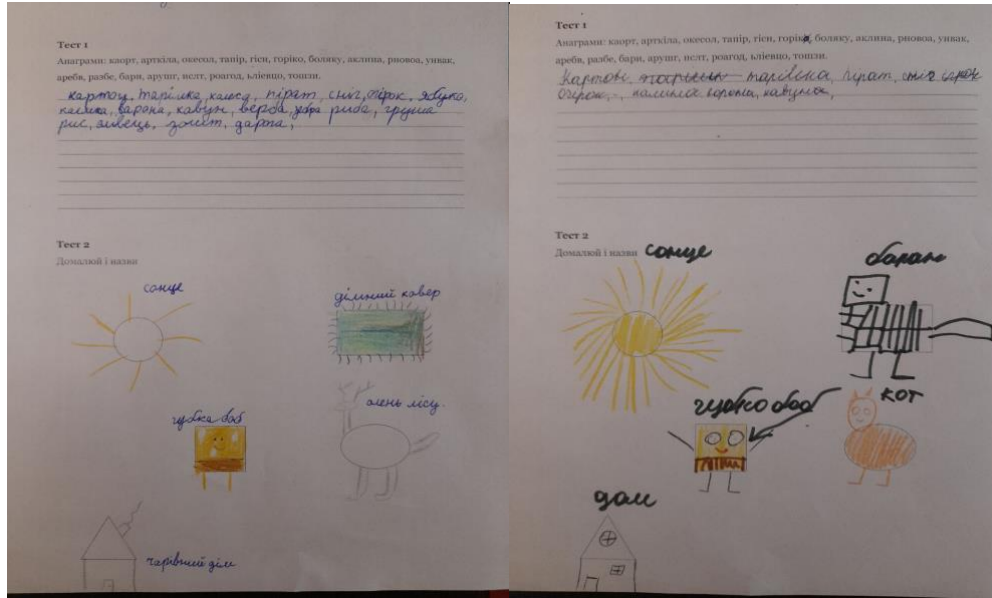 Тест 1
Анаграми: каорт, арткіла, окесол, тапір, гісн, горіко, боляку, аклина, рновоа, унвак,
аребв, разбе, бари, арушг, ислт, роагод, ьліевцо, тошзи.
картоц, тарілка, колесо, пірат, сніг, огірок, яблуко,
калина, варона, кавун, верба, риба, груша
рис, зошит,
Тест 2
Домалюй і назви
сонце
дімний ковер
губка боб
олень лісу.
чарівний дім
Тест 1
Анаграми: каорт, арткіла, окесол, тапір, гісн, горіко, боляку, аклина, рновоа, унвак,
аребв, разбе, бари, арушг, ислт, роагод, ьліевцо, тошзи.
тарілка, пірат, сніг
огірок, калина ворона,
Тест 2
Домалюй і назви
сонце
баран
губко боб
кот
дом